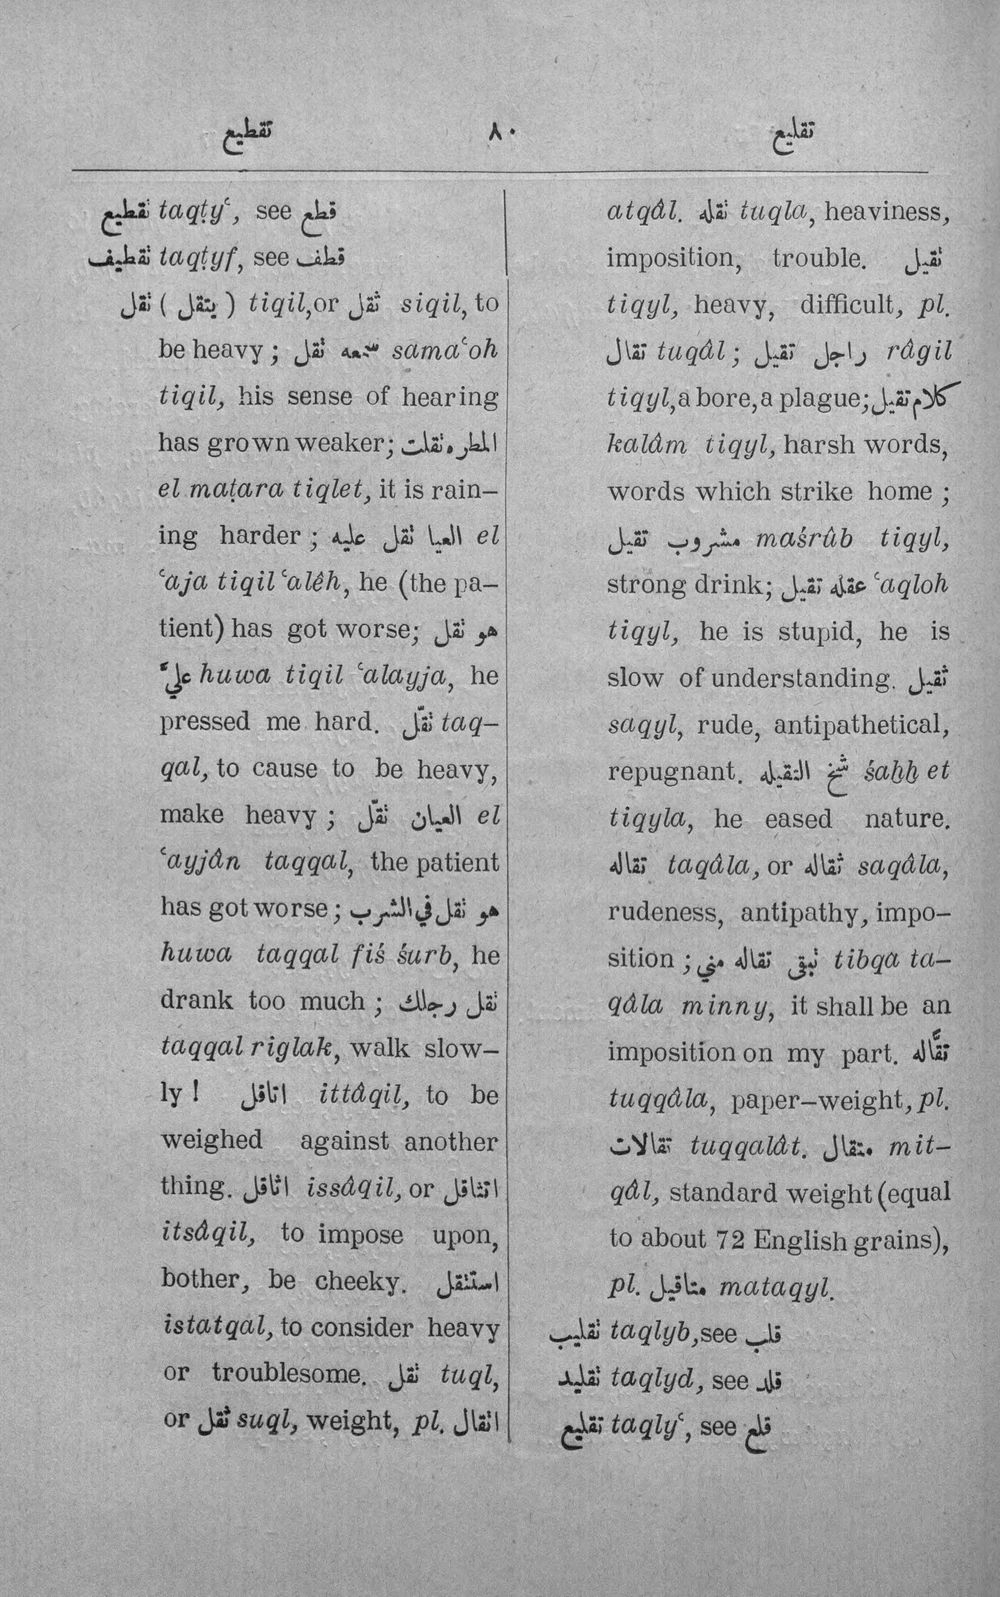 تقطيع ٨٠ تقليع
تقطيع taqṭyʿ, see قطع
تقطيف taqṭyf, see قطف
تقل ( يتقل ) tiqil, or ثقل siqil, to
be heavy ; سمعه تقل samaʿoh
tiqil, his sense of hearing
has grown weaker; المطره تقلت
el maṭara tiqlet, it is rain–
ing harder ; العيا تقل عليه el
ʿaja tiqil ʿalêh, he (the pa–
tient) has got worse; هو تقل
عليّ huwa tiqil ʿalayja, he
pressed me hard. تقّل taq–
qal, to cause to be heavy,
make heavy ; العيان تقّل el
ʿayjân taqqal, the patient
has got worse ; هو تقل في الشرب
huwa taqqal fiś śurb, he
drank too much ; تقل رجلك
taqqal riglak, walk slow–
ly ! اتاقل ittâqil, to be
weighed against another
thing. اثاقل issâqil, or اتثاقل
itsâqil, to impose upon,
bother, be cheeky. استتقل
istatqal, to consider heavy
or troublesome. تقل tuql,
or ثقل suql, weight, pl. اتقال
atqâl. تقله tuqla, heaviness,
imposition, trouble. تقيل
tiqyl, heavy, difficult, pl.
تقال tuqâl ; راجل تقيل râgil
tiqyl, a bore, a plague; كلام تقيل
kalâm tiqyl, harsh words,
words which strike home ;
مشروب تقيل maśrûb tiqyl,
strong drink; عقله تقيل ʿaqloh
tiqyl, he is stupid, he is
slow of understanding. ثقيل
saqyl, rude, antipathetical,
repugnant. شخ التقيله śaḫḫ et
tiqyla, he eased nature.
تقاله taqâla, or ثقاله saqâla,
rudeness, antipathy, impo–
sition ; تبقى تقاله مني tibqa ta–
qâla minny, it shall be an
imposition on my part. تقّاله
tuqqâla, paper–weight, pl.
تقالات tuqqalât. متقال mit–
qâl, standard weight (equal
to about 72 English grains),
pl. متاقيل mataqyl.
تقليب taqlyb, see قلب
تقليد taqlyd, see قلد
تقليع taqlyʿ, see قلع